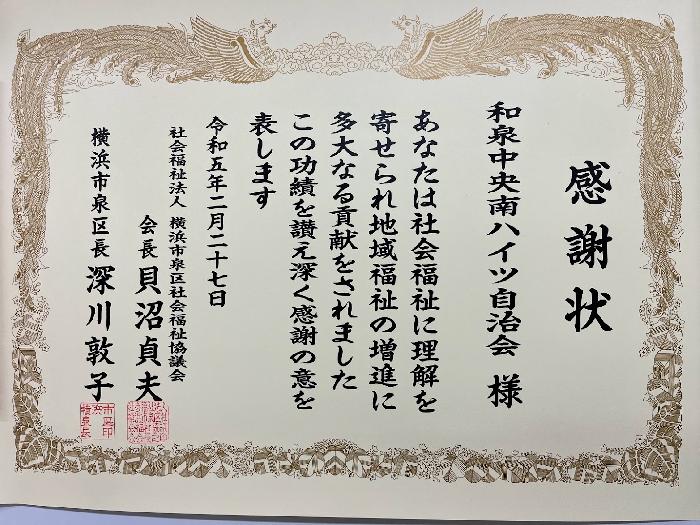 感謝状
和泉中央南ハイツ自治会 様
あなたは社会福祉に理解を
寄せられ地域福祉の増進に
多大なる貢献をされました
この功績を讃え深く感謝の意を
表します
令和五年二月二十七日
社会福祉法人 横浜市泉区社会福祉協議会
会長 貝沼貞夫
横浜市泉区長 深川敦子